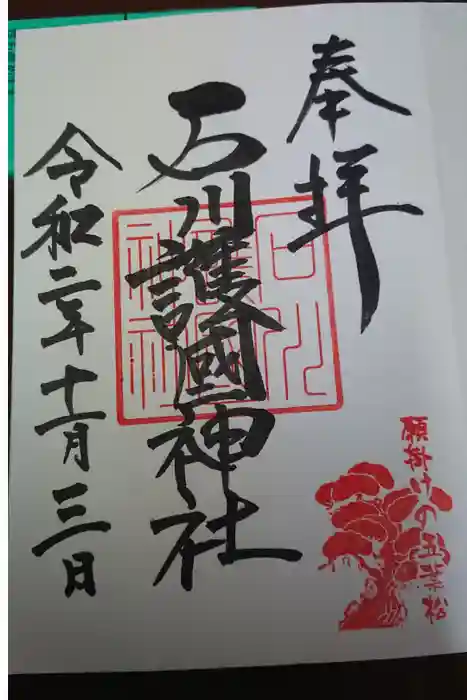 奉拝
石川護國神社
令和二年十一月三日
願掛けの五葉松